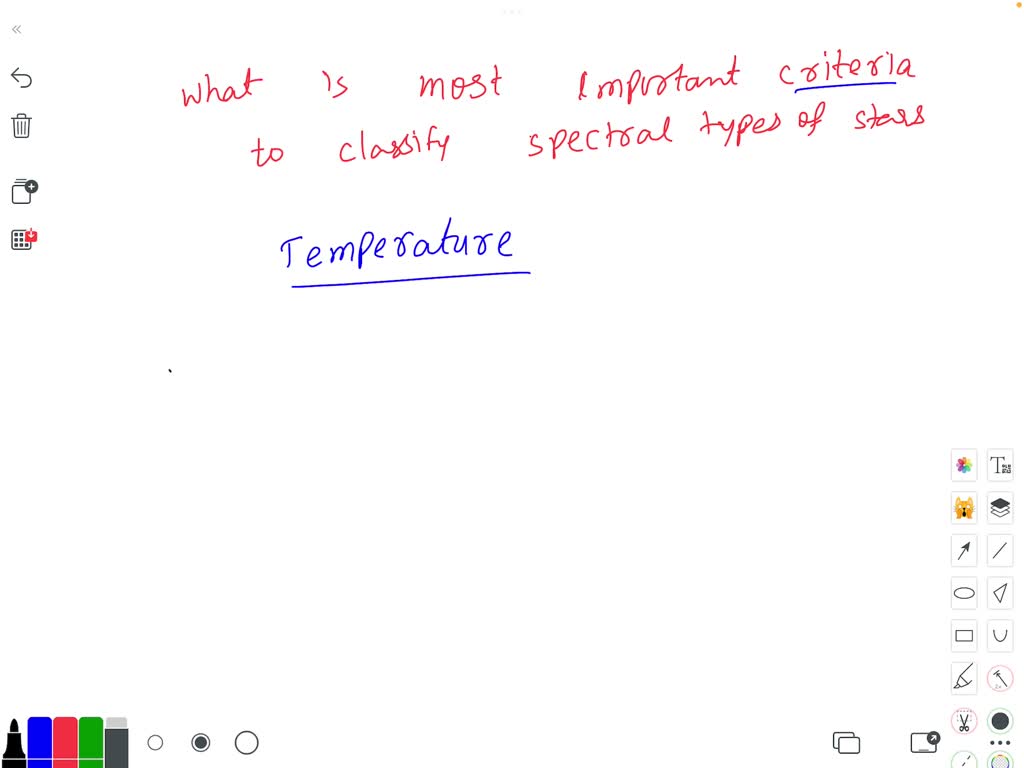 what is most important criteria
to classify spectral types of stars
Temperature